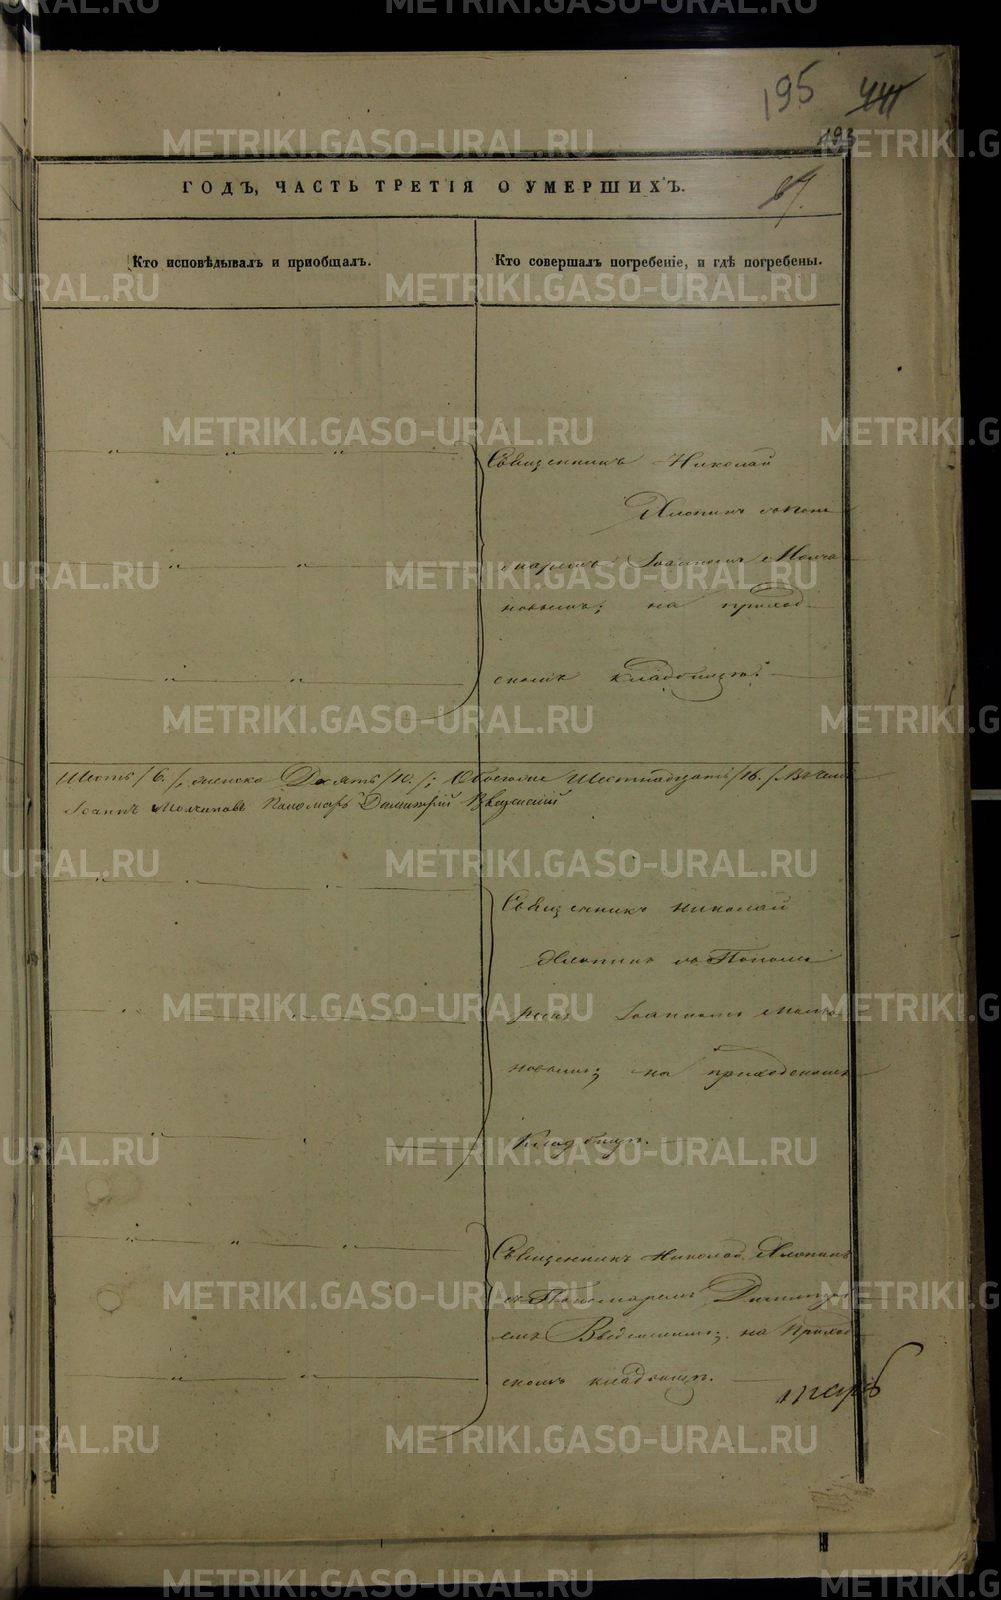 METRIKI.GASO-URAL.RU
195 441
193
ГОДЪ, ЧАСТЬ ТРЕТІЯ О УМЕРШИХЪ.
67.
Кто исповѣдывалъ и пріобщалъ.
Кто совершалъ погребеніе, и гдѣ погребены.
Священникъ Николай
Хлопинъ съ Поно
маремъ Іоанномъ Молча
новымъ; на приход
скомъ кладбищѣ.
Шесть /6./, женска Десять /10./; Обоего Шестнадцать /16./
Іоаннъ Молчановъ Пономарь Димитрій Введенскій
Священникъ Николай
Хлопинъ съ Понома
ремъ Іоанномъ Молча
новымъ; на приходскомъ
кладбищѣ.
Священникъ Николай Хлопинъ
съ Пономаремъ Димитрі
емъ Введенскимъ; на Приход
скомъ кладбищѣ.